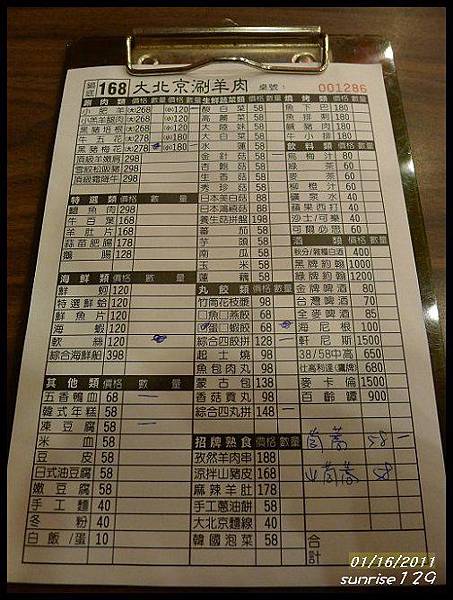 鍋底 168 大北京涮羊肉 桌號： 001286
涮肉類 價格 數量 價格 數量
小肥羊 大268 小120
小羔羊腿肉 大268 小120
黑豬培根 大268 小120
五花 大278 小180
黑豬梅花 大278 小180
頂級羊嫩肩 298
雪紋松阪豬 298
頂級霜降牛 298
特選類 價格 數量
鱷魚肉 298
牛百葉 168
羊肚片 168
蒜苗肥腸 178
鵝腸 128
海鮮類 價格 數量
鮮蚵 120
特選鮮蛤 120
鮮魚片 120
海蝦 120
軟絲 120
綜合海鮮船 398
其他類 價格 數量
五香鴨血 68 一
韓式年糕 58
凍豆腐 58 一
米血 58
豆皮 58
日式油豆腐 58
嫩豆腐 58
手工麵 40
冬粉 40
白飯/蛋 10
生鮮蔬菜類 價格 數量
酸白菜 58
高麗菜 58
大陸妹 58
大白菜 58
水蓮 58
金針菇 58
香菇 58
生香菇 58
秀珍菇 58
日本美白菇 88
日本鴻禧菇 88
養生菇拼盤 198
番茄 58
芋頭 58
南瓜 58
玉米 58
蓮藕 58
丸餃類 價格 數量
竹筒花枝漿 98
魚燕餃 68
蛋蝦餃 68
綜合四餃拼 128 一
起士燒 98
魚包肉丸 98
蒙古包 138
香菇貢丸 98
綜合四丸拼 148 一
招牌熟食 價格 數量
孜然羊肉串 188
涼拌山豬皮 168
麻辣羊肚 178
手工蔥油餅 58
大北京麵線 40
韓國泡菜 58
燒烤類 價格 數量
魚下巴 180
魚排剌 180
鹹豬肉 180
牛小排 180
飲料類 價格 數量
烏梅汁 80
綠茶 60
麥茶 60
柳橙汁 60
礦泉水 40
蘋果西打 40
沙士/可樂 40
可爾必思 60
酒類 價格 數量
秋分/雜糧白酒 400
黑牌約翰 1000
綠牌約翰 1200
金牌啤酒 80
台灣啤酒 70
全麥啤酒 85
海尼根 100
軒尼斯 1500
38/58中高 650
仕高利達(鷹牌) 680
麥卡倫 1500
百齡罈 900
茼蒿 58 一
山茼蒿 58
合計
01/16/2011
sunrise129